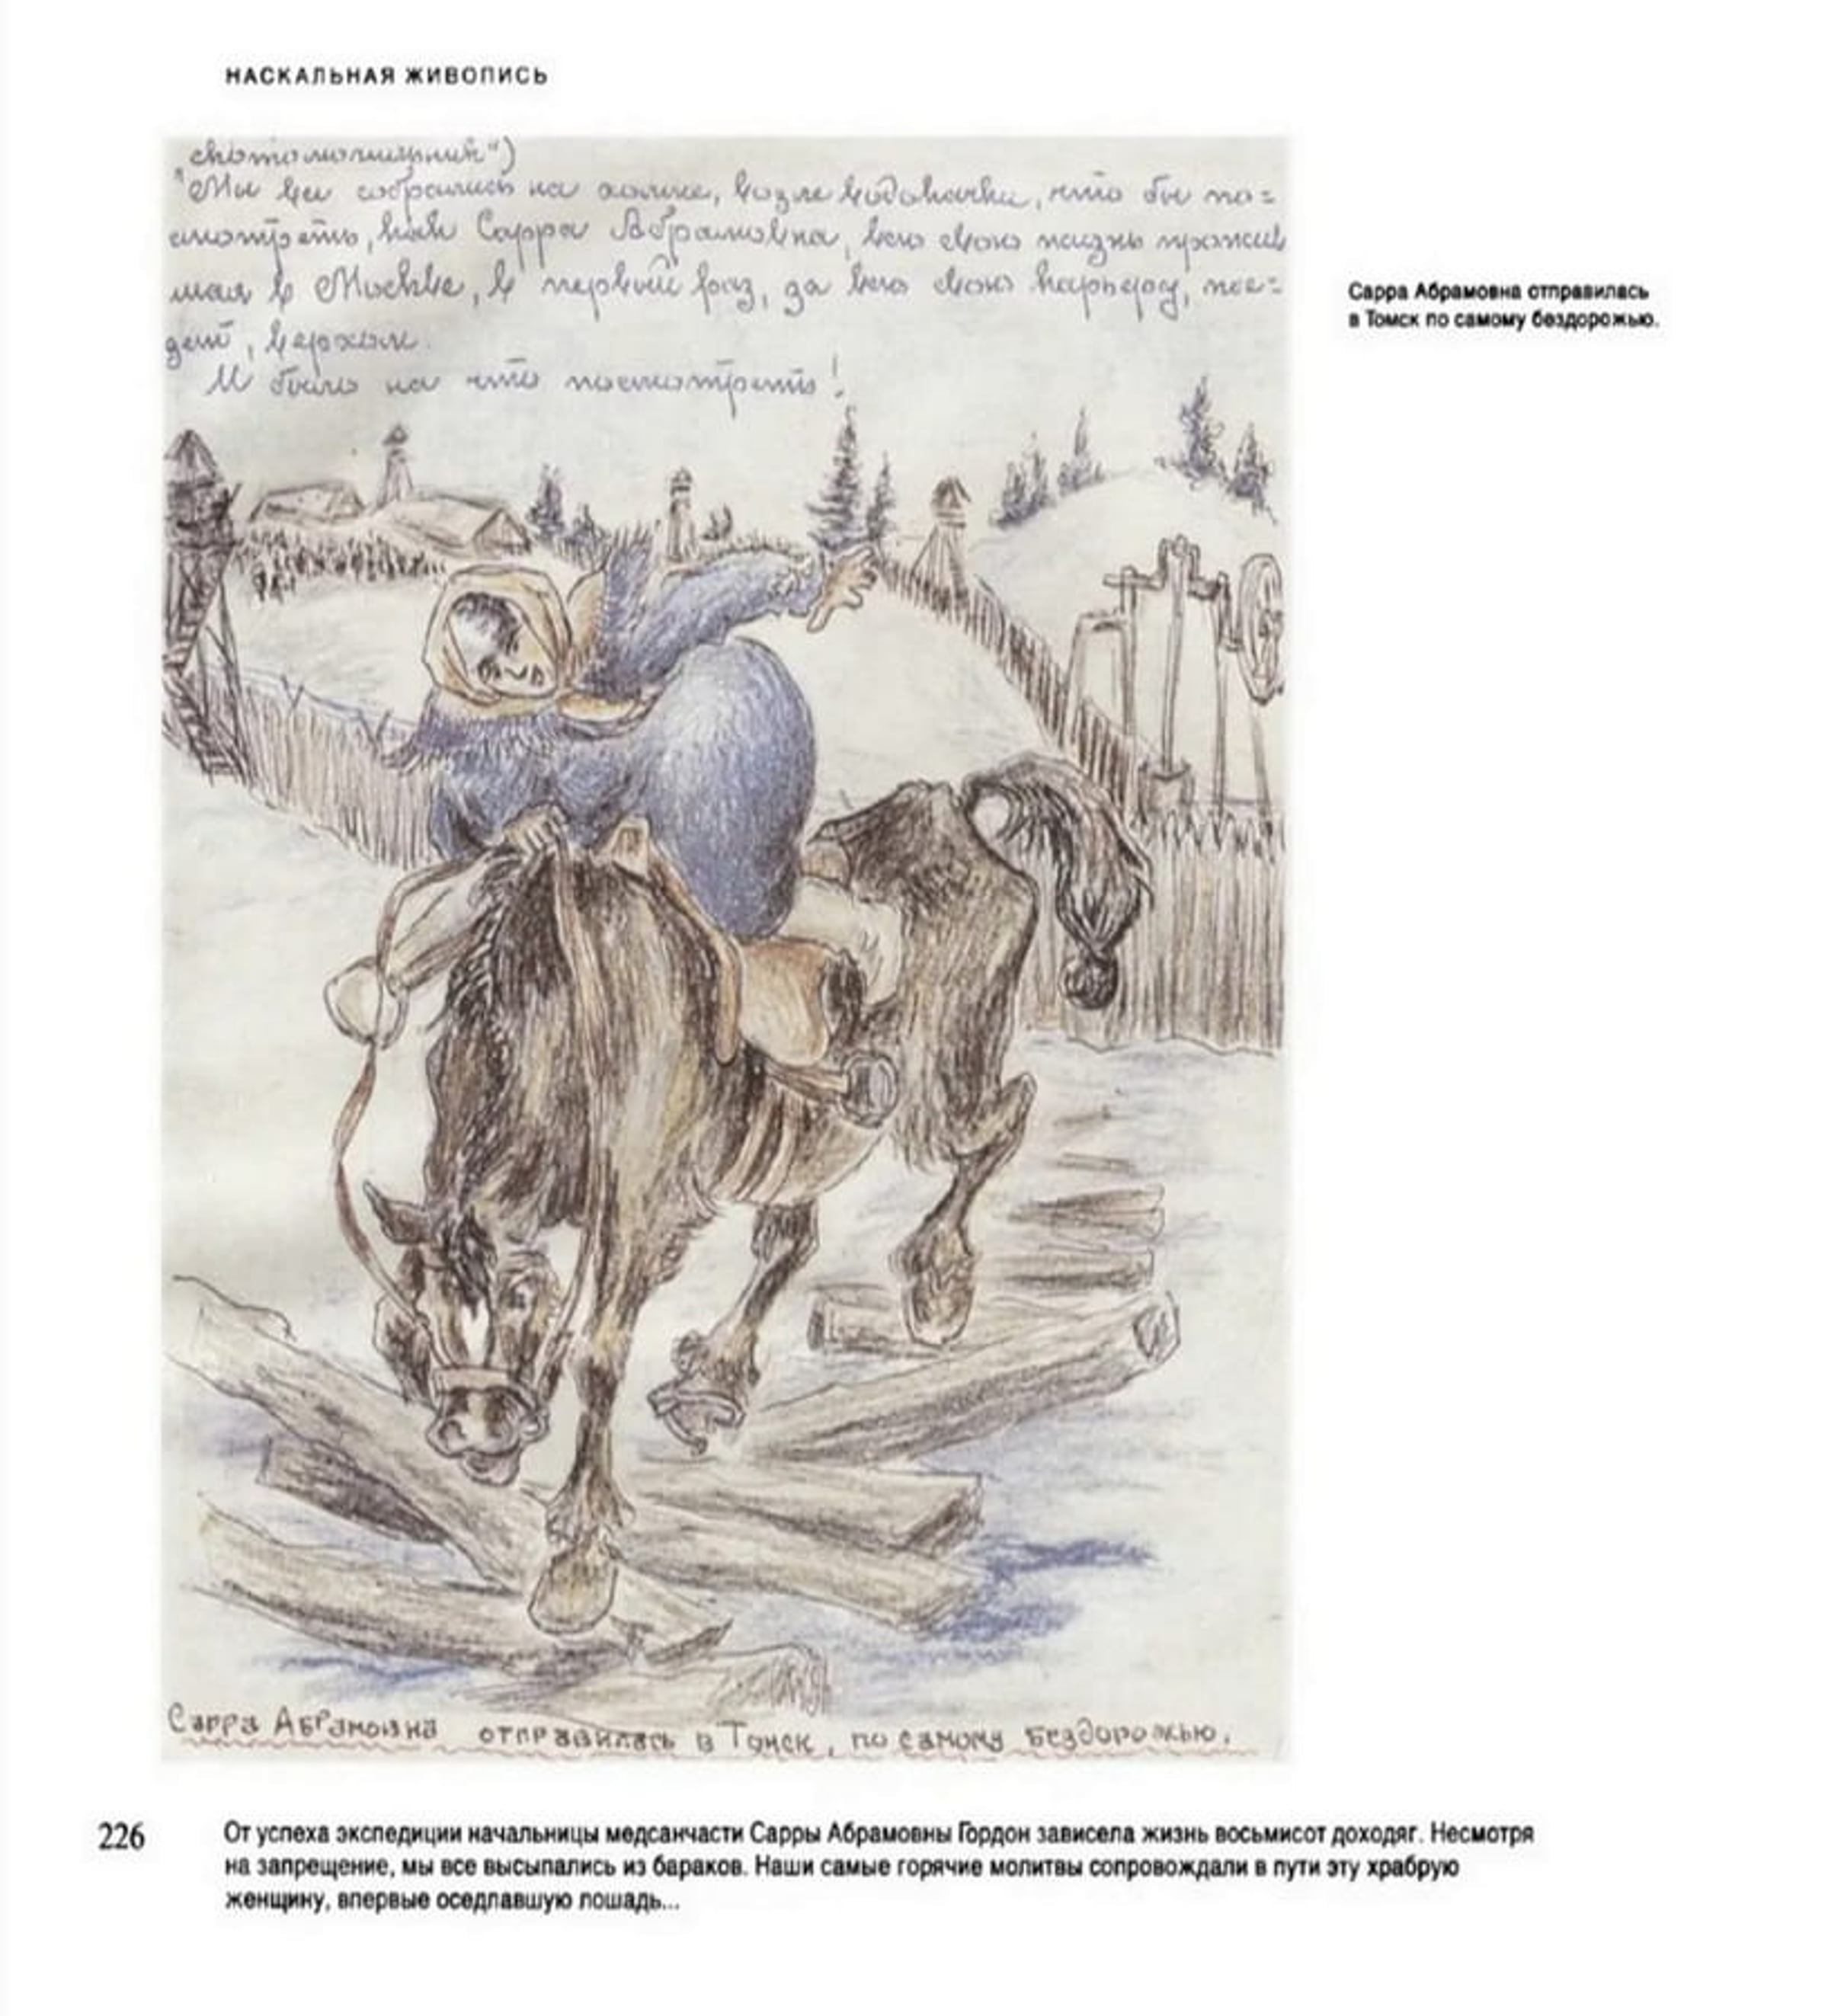 НАСКАЛЬНАЯ ЖИВОПИСЬ
"скотомогильник")
"Мы все собрались на холме, возле водокачки, что бы по=
смотреть, как Сарра Абрамовна, всю свою жизнь прожив
шая в Москве, в первый раз, за всю свою карьеру, пое=
дет, верхом.
И было на что посмотреть!
Сарра Абрамовна отправилась
в Томск по самому бездорожью.
Сарра Абрамовна отправилась в Томск, по самому бездорожью.
226
От успеха экспедиции начальницы медсанчасти Сарры Абрамовны Гордон зависела жизнь восьмисот доходяг. Несмотря
на запрещение, мы все высыпались из бараков. Наши самые горячие молитвы сопровождали в пути эту храбрую
женщину, впервые оседлавшую лошадь...